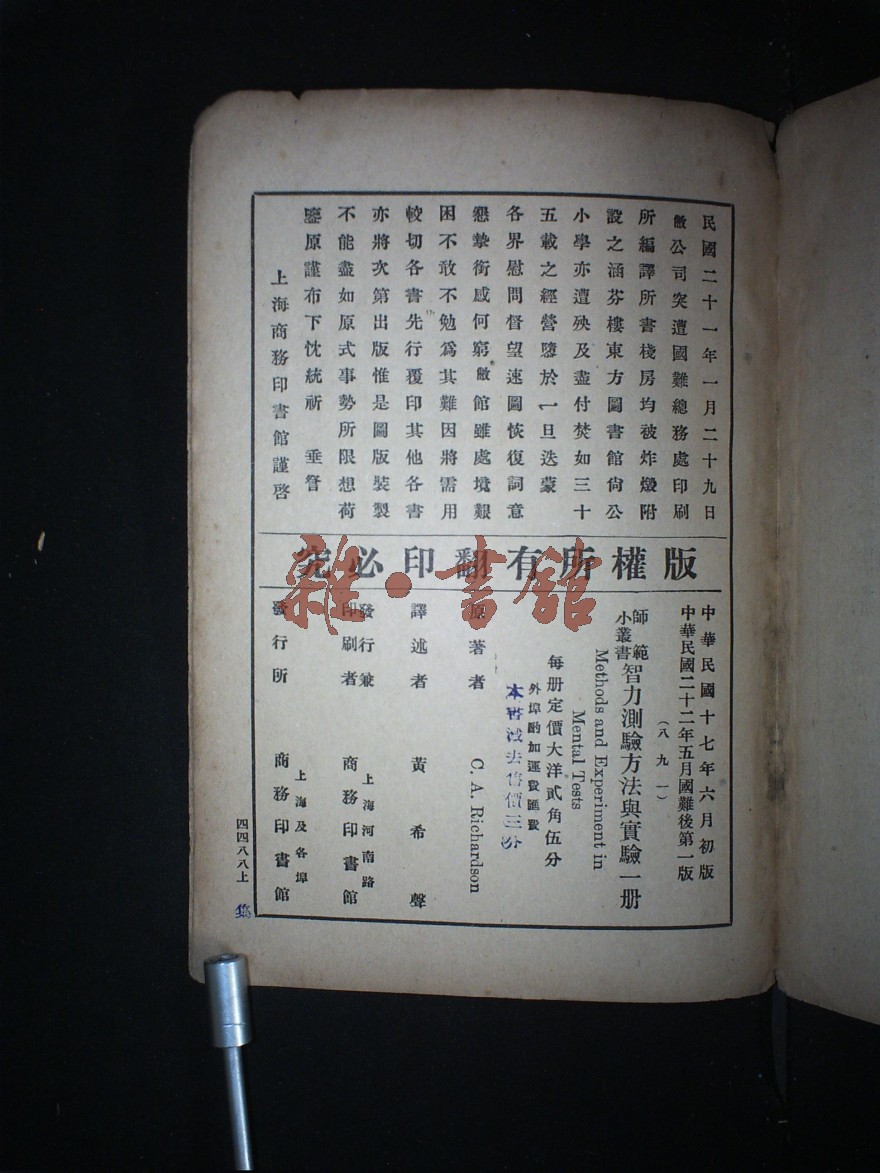 民國二十一年一月二十九日
敝公司突遭國難總務處印刷
所編譯所書棧房均被炸燬附
設之涵芬樓東方圖書館尙公
小學亦遭殃及盡付焚如三十
五載之經營隳於一旦迭蒙
各界慰問督望速圖恢復詞意
懇摯銜感何窮敝館雖處境艱
困不敢不勉爲其難因將需用
較切各書先行覆印其他各書
亦將次第出版惟是圖版裝製
不能盡如原式事勢所限想荷
鑒原謹布下忱統祈 垂詧
上海商務印書館謹啓
版權所有翻印必究
中華民國十七年六月初版
中華民國二十二年五月國難後第一版
(八九一)
師範小叢書
智力測驗方法與實驗一册
Methods and Experiment in
Mental Tests
每册定價大洋貳角伍分
外埠酌加運費匯費
本書減去售價三分
原著者 C. A. Richardson
譯述者 黃希聲
發行兼印刷者 上海河南路 商務印書館
發行所 上海及各埠 商務印書館
四四八八上
雜·書館